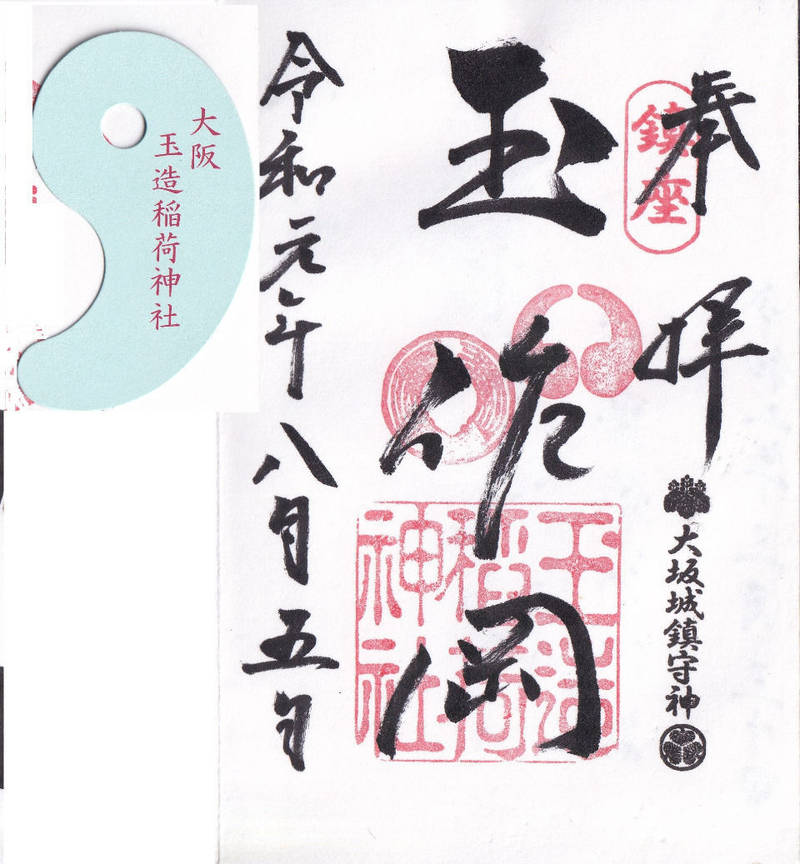 奉拝
鎮座
大坂城鎮守神
玉作岡
玉造
稲荷
神社
令和元年八月五日
大阪
玉造稲荷神社